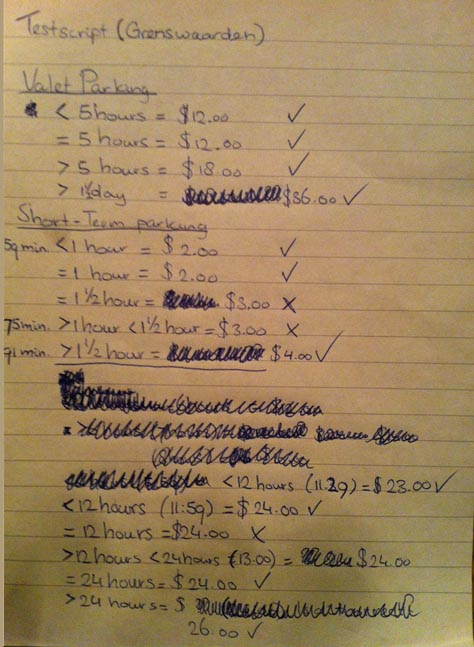 Testscript (Grenswaarden)
Valet Parking
< 5 hours = $12.00 ✓
= 5 hours = $12.00 ✓
> 5 hours = $18.00 ✓
> 1½ day = $36.00 ✓
Short-Term parkung
59 min. < 1 hour = $2.00 ✓
= 1 hour = $2.00 ✓
= 1 ½ hour = $3.00 X
75 min. > 1 hour < 1 ½ hour = $3.00 X
91 min. > 1 ½ hour = $4.00 ✓
< 12 hours (11:29) = $23.00 ✓
< 12 hours (11:59) = $24.00 ✓
= 12 hours = $24.00 X
> 12 hours < 24 hours (13:00) = $24.00
= 24 hours = $24.00 ✓
> 24 hours = $
26.00 ✓